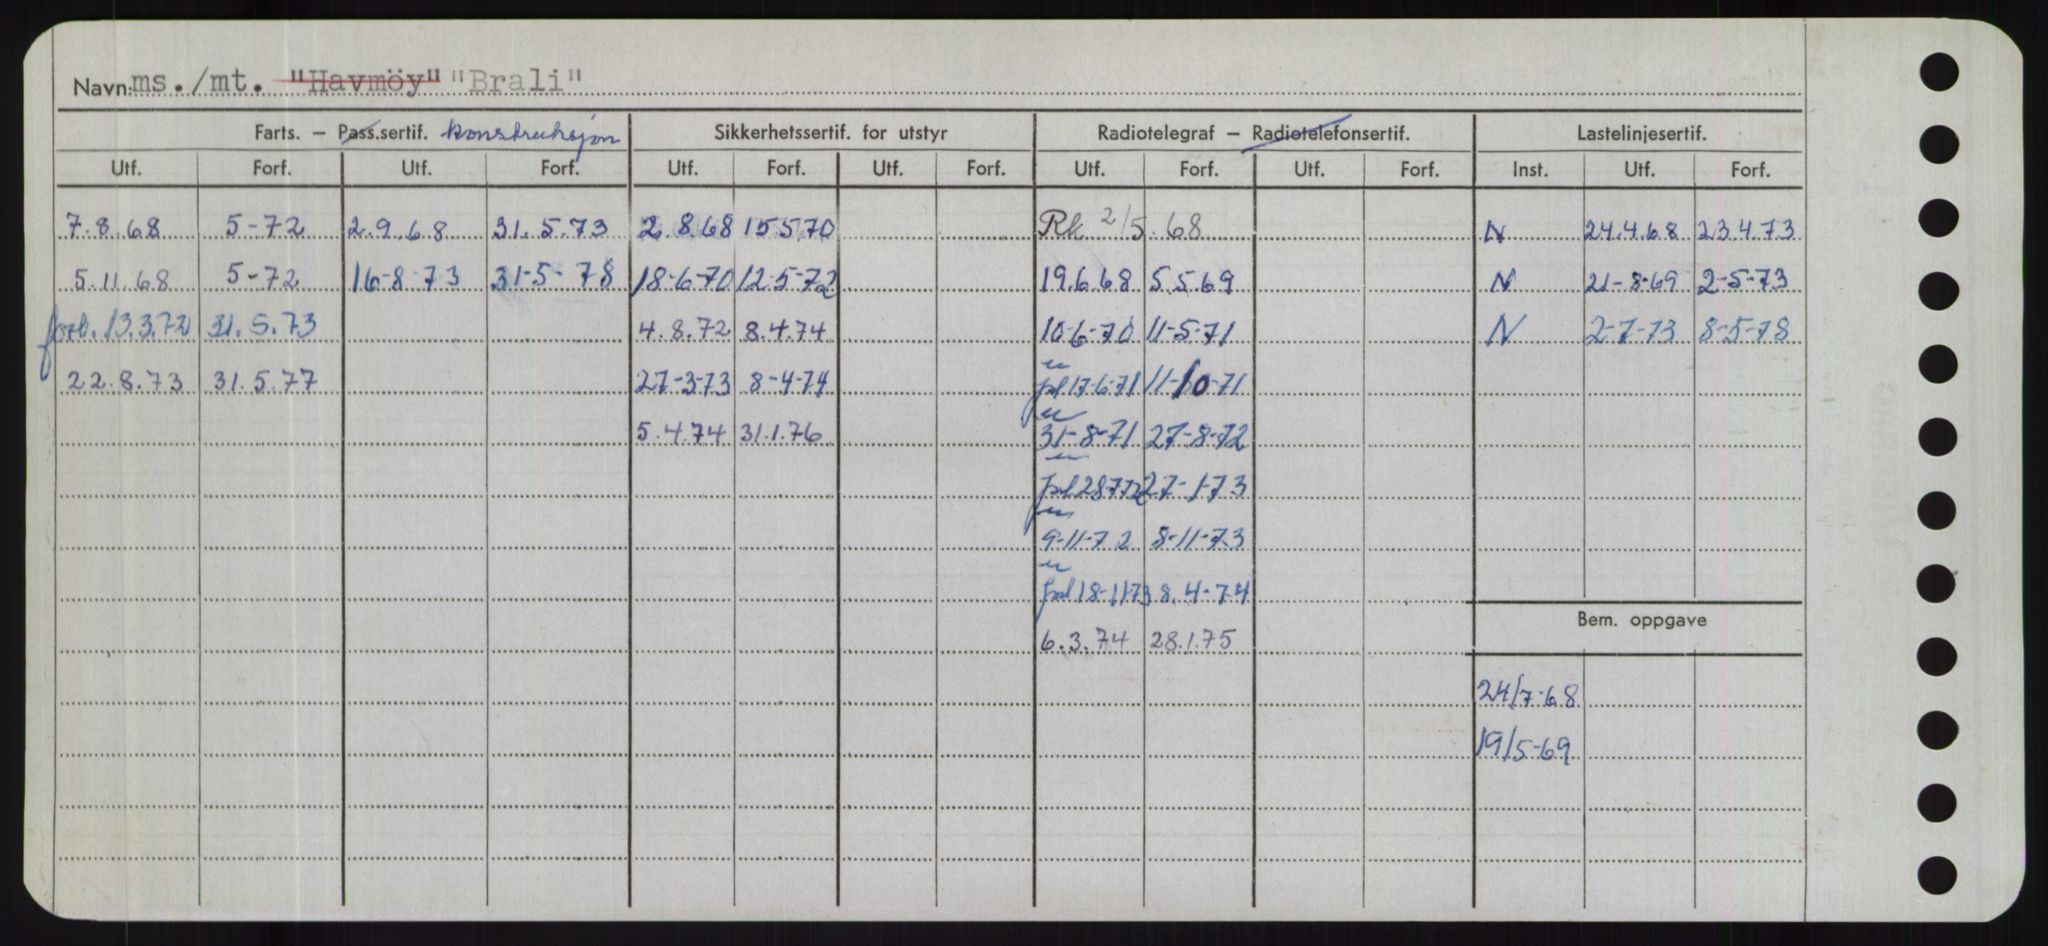 Navn: ms./mt. "Havmöy" "Brali"
Farts. – Pass.sertif. konstruksjon Sikkerhetssertif. for utstyr Radiotelegraf – Radiotelefonsertif. Lastelinjesertif.
Utf. Forf. Utf. Forf. Utf. Forf. Utf. Forf. Utf. Forf. Utf. Forf. Inst. Utf. Forf.
7.8.68 5-72 2.9.68 31.5.73 2.8.68 15570 Rk 2/5.68 N 24.4.68 23.4.73
5.11.68 5-72 16-8-73 31-5-78 18-6-70 12-5-72 19.6.68 5.5.69 N 21-8-69 2-5-73
forl. 13.3.72 31.5.73 4.8.72 8.4.74 10-6-70 11-5-71 N 2-7-73 8-5-78
22.8.73 31.5.77 27-3-73 8-4-74 forl 17-6-71 11-10-71
5.4.74 31.1.76 31-8-71 27-8-72
forl 28772 27-1-73
9-11-72 8-11-73
forl 18-1173 8.4-74
6.3.74 28.1.75
Bem. oppgave
24/7-68
19/5-69